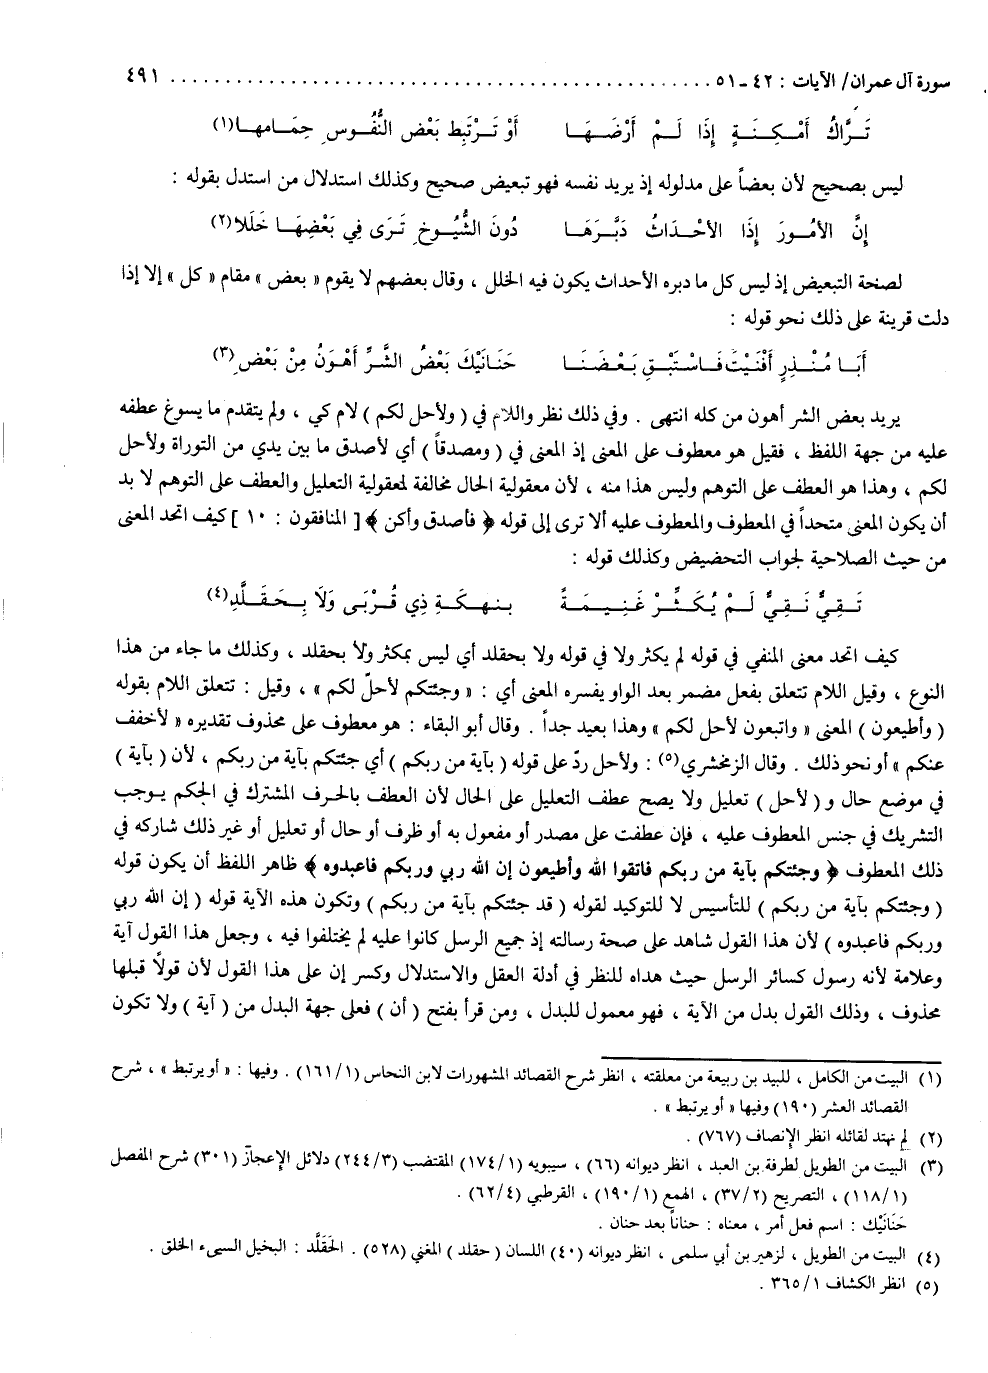 سورة آل عمران/ الآيات : ٤٢ ـ ٥١ ......................................................... ٤٩١
تَرَّاكُ أَمْكِنَةٍ إِذَا لَمْ أَرْضَهَا أَوْ تَرْتَبِطْ بَعْضَ النُّفُوسِ حِمَامها(١)
ليس بصحيح لأن بعضاً على مدلوله إذ يريد نفسه فهو تبعيض صحيح وكذلك استدلال من استدل بقوله :
إِنَّ الأُمُورَ إِذَا الأَحْدَاثُ دَبَّرَهَا دُونَ الشُّيُوخِ تَرَى فِي بَعْضِهَا خَلَلا(٢)
لصحة التبعيض إذ ليس كل ما دبره الأحداث يكون فيه الخلل ، وقال بعضهم لا يقوم « بعض » مقام « كل » إلا إذا
دلت قرينة على ذلك نحو قوله :
أَبَا مُنْذِرٍ أَفْنَيْتَ فَاسْتَبْقِ بَعْضَنَا حَنَانَيْكَ بَعْضُ الشَّرِّ أَهْوَنُ مِنْ بَعْضِ(٣)
يريد بعض الشر أهون من كله انتهى . وفي ذلك نظر واللام في ( ولأحل لكم ) لام كي ، ولم يتقدم ما يسوغ عطفه
عليه من جهة اللفظ ، فقيل هو معطوف على المعنى إذ المعنى في ( ومصدقاً ) أي لأصدق ما بين يدي من التوراة ولأحل
لكم ، وهذا هو العطف على التوهم وليس هذا منه ، لأن معقولية الحال مخالفة لمعقولية التعليل والعطف على التوهم لا بد
أن يكون المعنى متحداً في المعطوف والمعطوف عليه ألا ترى إلى قوله ﴿ فأصدق وأكن ﴾ [ المنافقون : ١٠ ] كيف اتحد المعنى
من حيث الصلاحية لجواب التحضيض وكذلك قوله :
تَقِيٌّ نَقِيٌّ لَمْ يُكَثِّرْ غَنِيمَةً بِنهكَةِ ذِي قُرْبَى وَلَا بِحَقَلَّدِ(٤)
كيف اتحد معنى المنفي في قوله لم يكثر ولا في قوله ولا بحقلد أي ليس بمكثر ولا بحقلد ، وكذلك ما جاء من هذا
النوع ، وقيل اللام تتعلق بفعل مضمر بعد الواو يفسره المعنى أي : « وجئتكم لأحلّ لكم » ، وقيل : تتعلق اللام بقوله
( وأطيعون ) المعنى « واتبعون لأحل لكم » وهذا بعيد جداً . وقال أبو البقاء : هو معطوف على محذوف تقديره « لأخفف
عنكم » أو نحو ذلك . وقال الزمخشري(٥) : ولأحل ردّ على قوله ( بآية من ربكم ) أي جئتكم بآية من ربكم ، لأن ( بآية )
في موضع حال و ( لأحل ) تعليل ولا يصح عطف التعليل على الحال لأن العطف بالحرف المشترك في الحكم يوجب
التشريك في جنس المعطوف عليه ، فإن عطفت على مصدر أو مفعول به أو ظرف أو حال أو تعليل أو غير ذلك شاركه في
ذلك المعطوف ﴿ وجئتكم بآية من ربكم فاتقوا الله وأطيعون إن الله ربي وربكم فاعبدوه ﴾ ظاهر اللفظ أن يكون قوله
( وجئتكم بآية من ربكم ) للتأسيس لا للتوكيد لقوله ( قد جئتكم بآية من ربكم ) وتكون هذه الآية قوله ( إن الله ربي
وربكم فاعبدوه ) لأن هذا القول شاهد على صحة رسالته إذ جميع الرسل كانوا عليه لم يختلفوا فيه ، وجعل هذا القول آية
وعلامة لأنه رسول كسائر الرسل حيث هداه للنظر في أدلة العقل والاستدلال وكسر إن على هذا القول لأن قولاً قبلها
محذوف ، وذلك القول بدل من الآية ، فهو معمول للبدل ، ومن قرأ بفتح ( أن ) فعلى جهة البدل من ( آية ) ولا تكون
(١) البيت من الكامل ، للبيد بن ربيعة من معلقته ، انظر شرح القصائد المشهورات لابن النحاس (١/ ١٦١) . وفيها : « أو يرتبط » ، شرح
القصائد العشر (١٩٠) وفيها « أو يرتبط » .
(٢) لم نهتد لقائله انظر الإنصاف (٧٦٧) .
(٣) البيت من الطويل لطرفة بن العبد ، انظر ديوانه (٦٦) ، سيبويه (١/ ١٧٤) المقتضب (٣/ ٢٤٤) دلائل الإعجاز (٣٠١) شرح المفصل
(١/ ١١٨) ، التصريح (٢/ ٣٧) ، الهمع (١/ ١٩٠) ، القرطبي (٤/ ٦٢) .
حَنَانَيْك : اسم فعل أمر ، معناه : حناناً بعد حنان .
(٤) البيت من الطويل ، لزهير بن أبي سلمى ، انظر ديوانه (٤٠) اللسان ( حقلد ) المغني (٥٢٨) . الحَقَلَّد : البخيل السيىء الخلق .
(٥) انظر الكشاف ١/ ٣٦٥ .